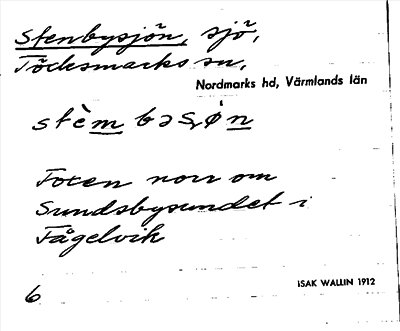 Stenbysjön, sjö,
Töcksmarks sn,
Nordmarks hd, Värmlands län
stèmbəsøn
Foxen norr om
Sundsbysundet i
Fågelvik
ISAK WALLIN 1912
6